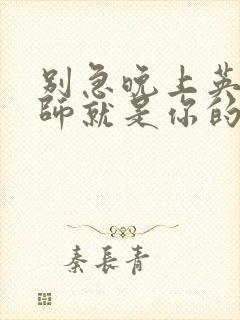 别急晚上英
师就是你的
秦长青